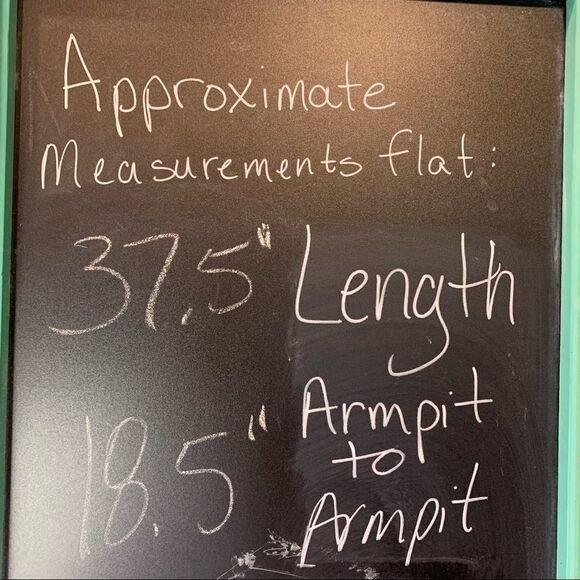 Approximate
Measurements flat:
37.5" Length
18.5" Armpit
to
Armpit